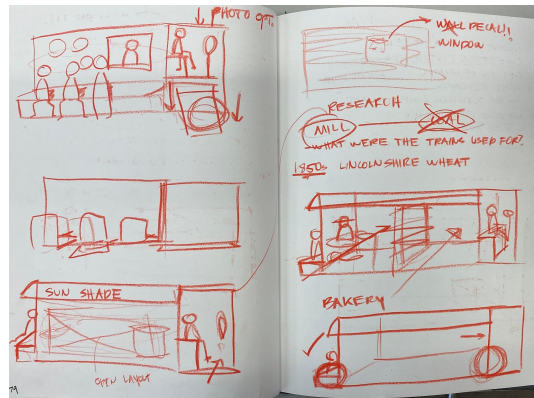 PHOTO OPT.
SUN SHADE
OPEN LAYOUT
79
WALL DECAL!!
WINDOW
RESEARCH
MILL
COAL
WHAT WERE THE TRAINS USED FOR?
1850s LINCOLNSHIRE WHEAT
BAKERY